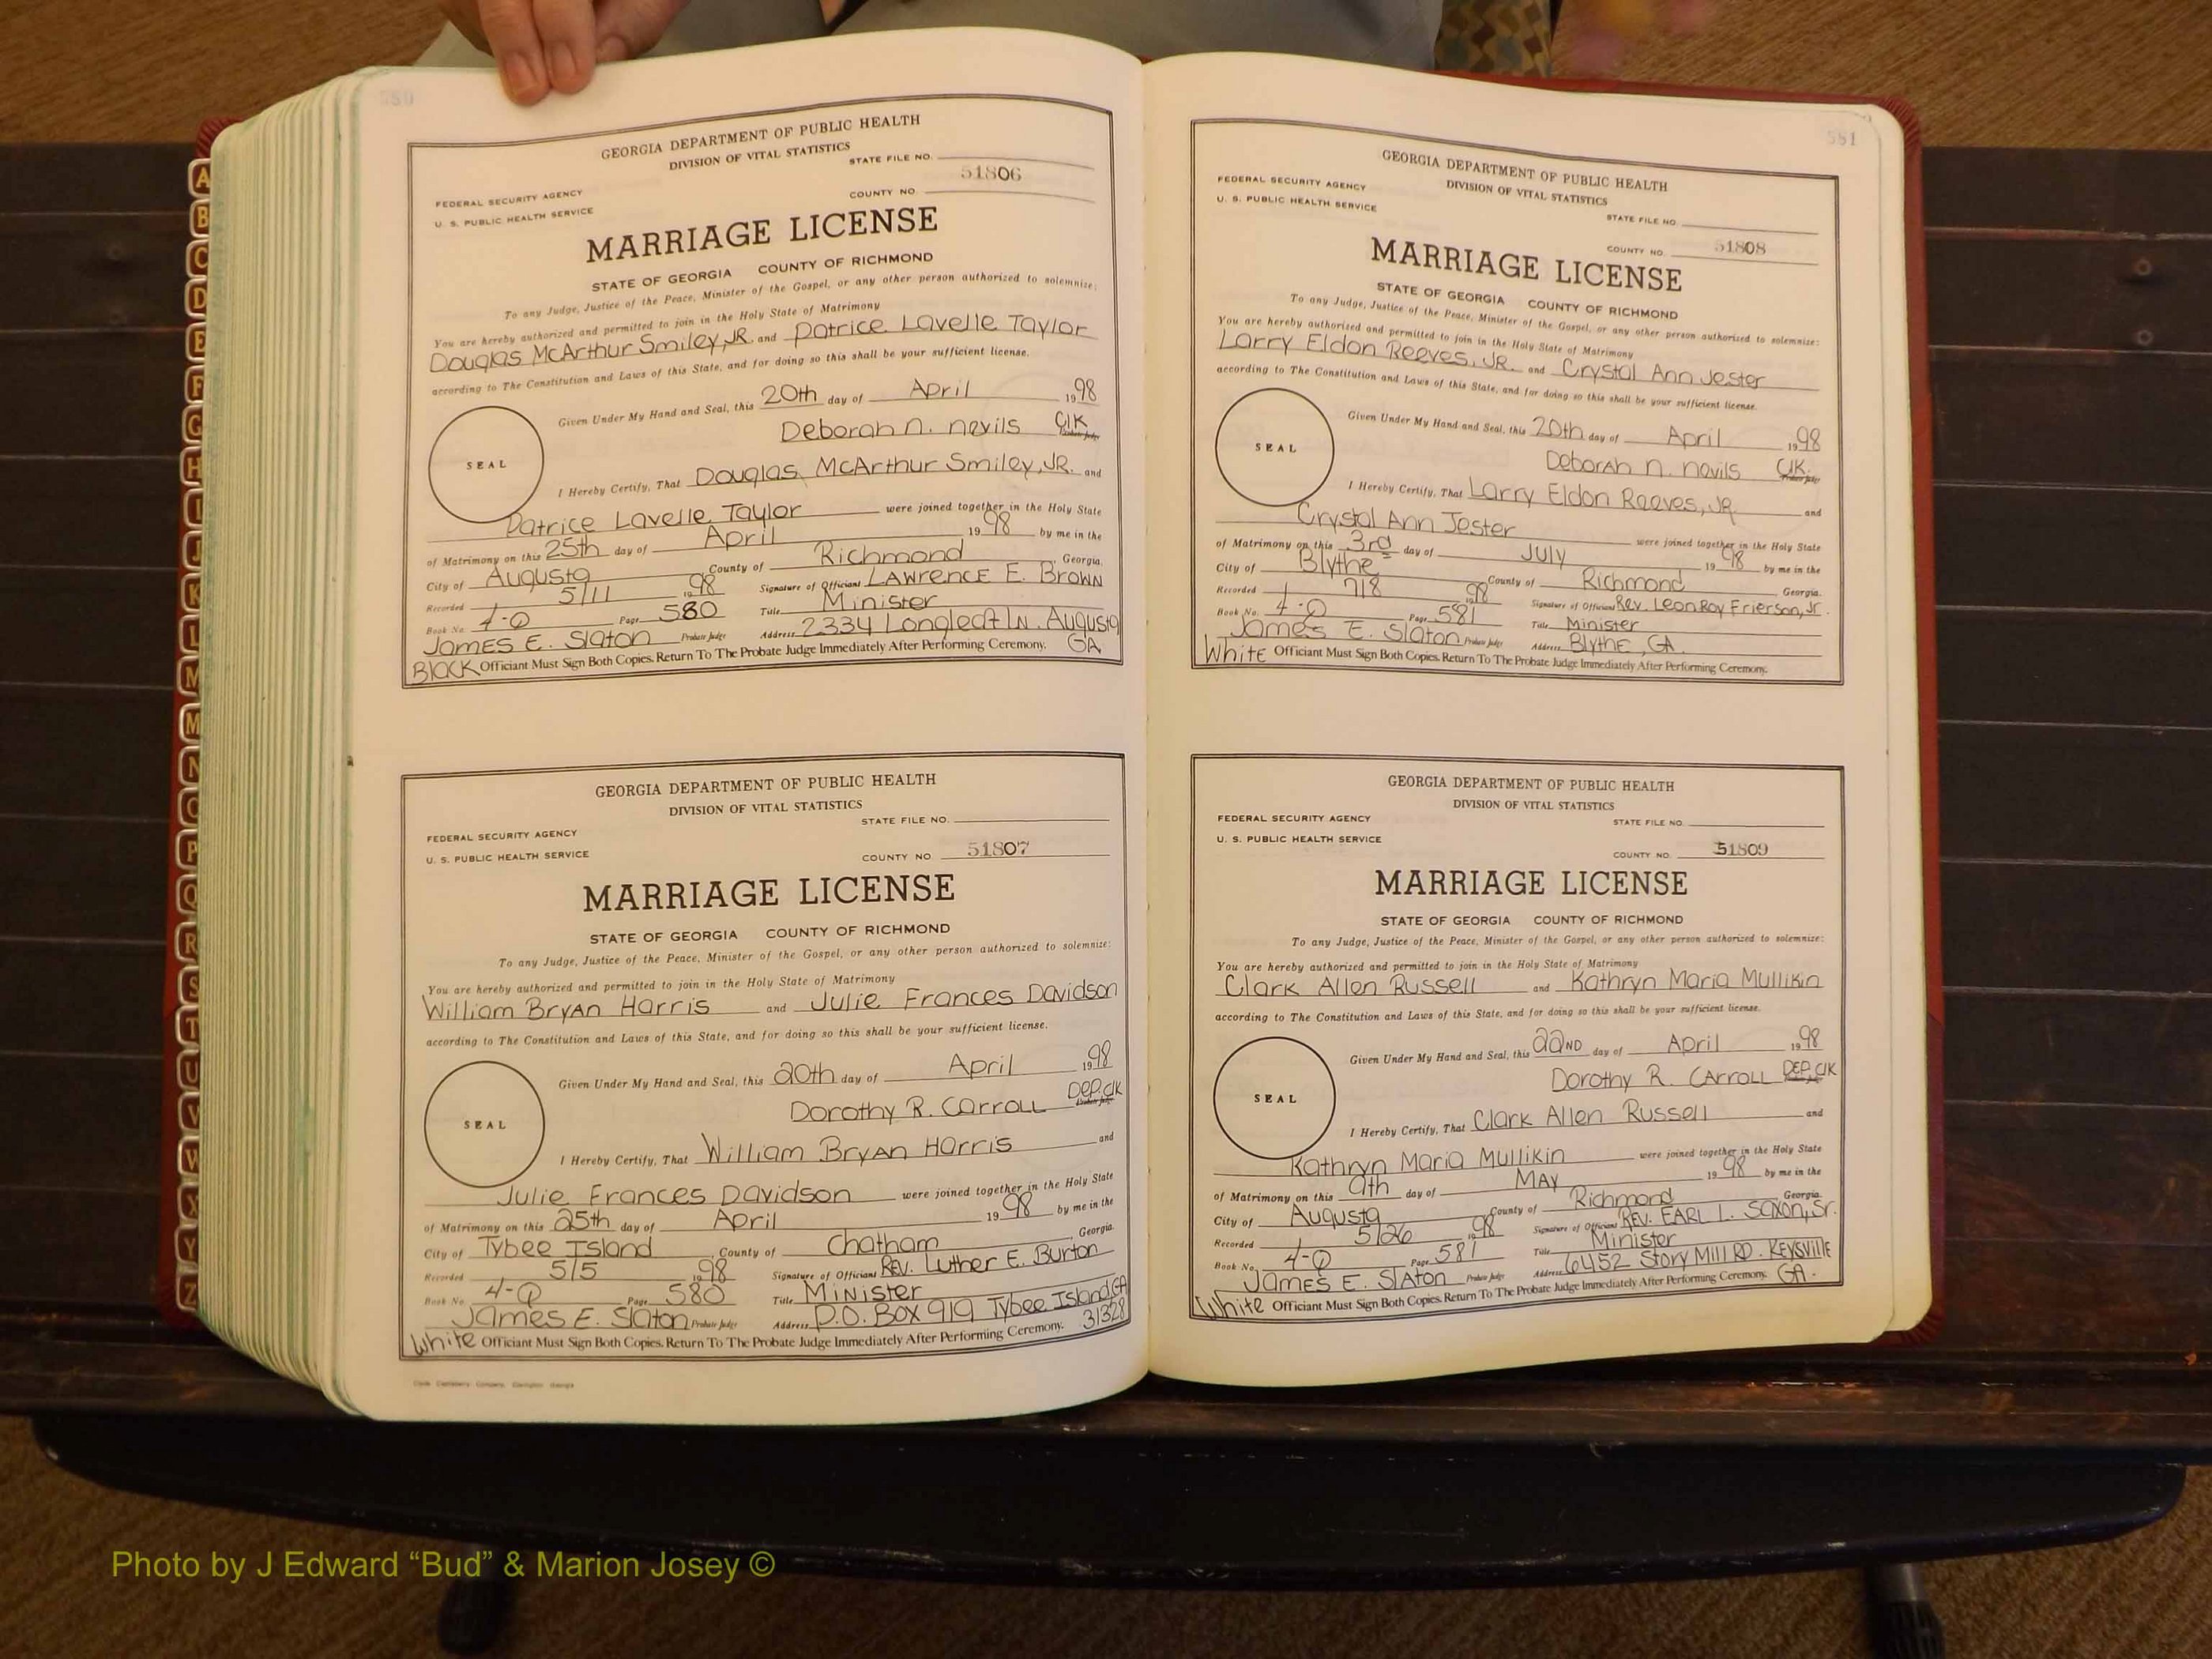 580
GEORGIA DEPARTMENT OF PUBLIC HEALTH
DIVISION OF VITAL STATISTICS
STATE FILE NO.
51806
FEDERAL SECURITY AGENCY
COUNTY NO.
U. S. PUBLIC HEALTH SERVICE
MARRIAGE LICENSE
STATE OF GEORGIA COUNTY OF RICHMOND
To any Judge, Justice of the Peace, Minister of the Gospel, or any other person authorized to solemnize:
You are hereby authorized and permitted to join in the Holy State of Matrimony
Douglas McArthur Smiley, JR. and Patrice Lavelle Taylor
according to The Constitution and Laws of this State, and for doing so this shall be your sufficient license.
Given Under My Hand and Seal, this 20th day of April 1998
Deborah n. nevils Clk. Probate Judge
SEAL
I Hereby Certify, That Douglas McArthur Smiley, JR. and
Patrice Lavelle Taylor were joined together in the Holy State
of Matrimony on this 25th day of April 1998 by me in the
City of Augusta County of Richmond Georgia.
Recorded 5/11 1998 Signature of Officiant LAWRENCE E. BROWN
Book No. 4-Q Page 580 Title Minister
James E. Slaton Probate Judge Address 2334 Longleaf LN. Augusta
GA
Black Officiant Must Sign Both Copies. Return To The Probate Judge Immediately After Performing Ceremony.
GEORGIA DEPARTMENT OF PUBLIC HEALTH
DIVISION OF VITAL STATISTICS
STATE FILE NO.
FEDERAL SECURITY AGENCY
U. S. PUBLIC HEALTH SERVICE
COUNTY NO. 51807
MARRIAGE LICENSE
STATE OF GEORGIA COUNTY OF RICHMOND
To any Judge, Justice of the Peace, Minister of the Gospel, or any other person authorized to solemnize:
You are hereby authorized and permitted to join in the Holy State of Matrimony
William Bryan Harris and Julie Frances Davidson
according to The Constitution and Laws of this State, and for doing so this shall be your sufficient license.
Given Under My Hand and Seal, this 20th day of April 1998
Dorothy R. Carroll DEP. Clk Probate Judge
SEAL
I Hereby Certify, That William Bryan Harris and
Julie Frances Davidson were joined together in the Holy State
of Matrimony on this 25th day of April 1998 by me in the
City of Tybee Island, County of Chatham, Georgia.
Recorded 5/5 1998 Signature of Officiant REV. Luther E. Burton
Book No. 4-Q Page 580 Title Minister
James E. Slaton Probate Judge Address P.O. BOX 919 Tybee Island, GA
31328
White Officiant Must Sign Both Copies. Return To The Probate Judge Immediately After Performing Ceremony.
581
GEORGIA DEPARTMENT OF PUBLIC HEALTH
DIVISION OF VITAL STATISTICS
FEDERAL SECURITY AGENCY
U. S. PUBLIC HEALTH SERVICE
STATE FILE NO.
COUNTY NO. 51808
MARRIAGE LICENSE
STATE OF GEORGIA COUNTY OF RICHMOND
To any Judge, Justice of the Peace, Minister of the Gospel, or any other person authorized to solemnize:
You are hereby authorized and permitted to join in the Holy State of Matrimony
Larry Eldon Reeves, JR. and Crystal Ann Jester
according to The Constitution and Laws of this State, and for doing so this shall be your sufficient license.
Given Under My Hand and Seal, this 20th day of April 1998
Deborah n. nevils Clk. Probate Judge
SEAL
I Hereby Certify, That Larry Eldon Reeves, JR. and
Crystal Ann Jester were joined together in the Holy State
of Matrimony on this 3rd day of July 1998 by me in the
City of Blythe County of Richmond Georgia.
Recorded 7/8 1998 Signature of Officiant Rev. Leon Roy Frierson, Jr.
Book No. 4-Q Page 581 Title Minister
James E. Slaton Probate Judge Address Blythe, GA.
White Officiant Must Sign Both Copies. Return To The Probate Judge Immediately After Performing Ceremony.
GEORGIA DEPARTMENT OF PUBLIC HEALTH
DIVISION OF VITAL STATISTICS
FEDERAL SECURITY AGENCY
STATE FILE NO.
U. S. PUBLIC HEALTH SERVICE
COUNTY NO. 51809
MARRIAGE LICENSE
STATE OF GEORGIA COUNTY OF RICHMOND
To any Judge, Justice of the Peace, Minister of the Gospel, or any other person authorized to solemnize:
You are hereby authorized and permitted to join in the Holy State of Matrimony
Clark Allen Russell and Kathryn Maria Mullikin
according to The Constitution and Laws of this State, and for doing so this shall be your sufficient license.
Given Under My Hand and Seal, this 22ND day of April 1998
Dorothy R. Carroll DEP. Clk Probate Judge
SEAL
I Hereby Certify, That Clark Allen Russell and
Kathryn Maria Mullikin were joined together in the Holy State
of Matrimony on this 9th day of MAY 1998 by me in the
City of Augusta County of Richmond Georgia.
Recorded 5/26 1998 Signature of Officiant REV. EARL L. SAXON, Sr.
Book No. 4-Q Page 581 Title Minister
James E. Slaton Probate Judge Address 6452 Story Mill RD. KEYSVILLE
GA.
White Officiant Must Sign Both Copies. Return To The Probate Judge Immediately After Performing Ceremony.
A
B
C
D
E
F
G
H
I
J
K
L
M
M
N
O
P
Q
R
S
T
U
V
W
X
Y
Z
Photo by J Edward “Bud” & Marion Josey ©